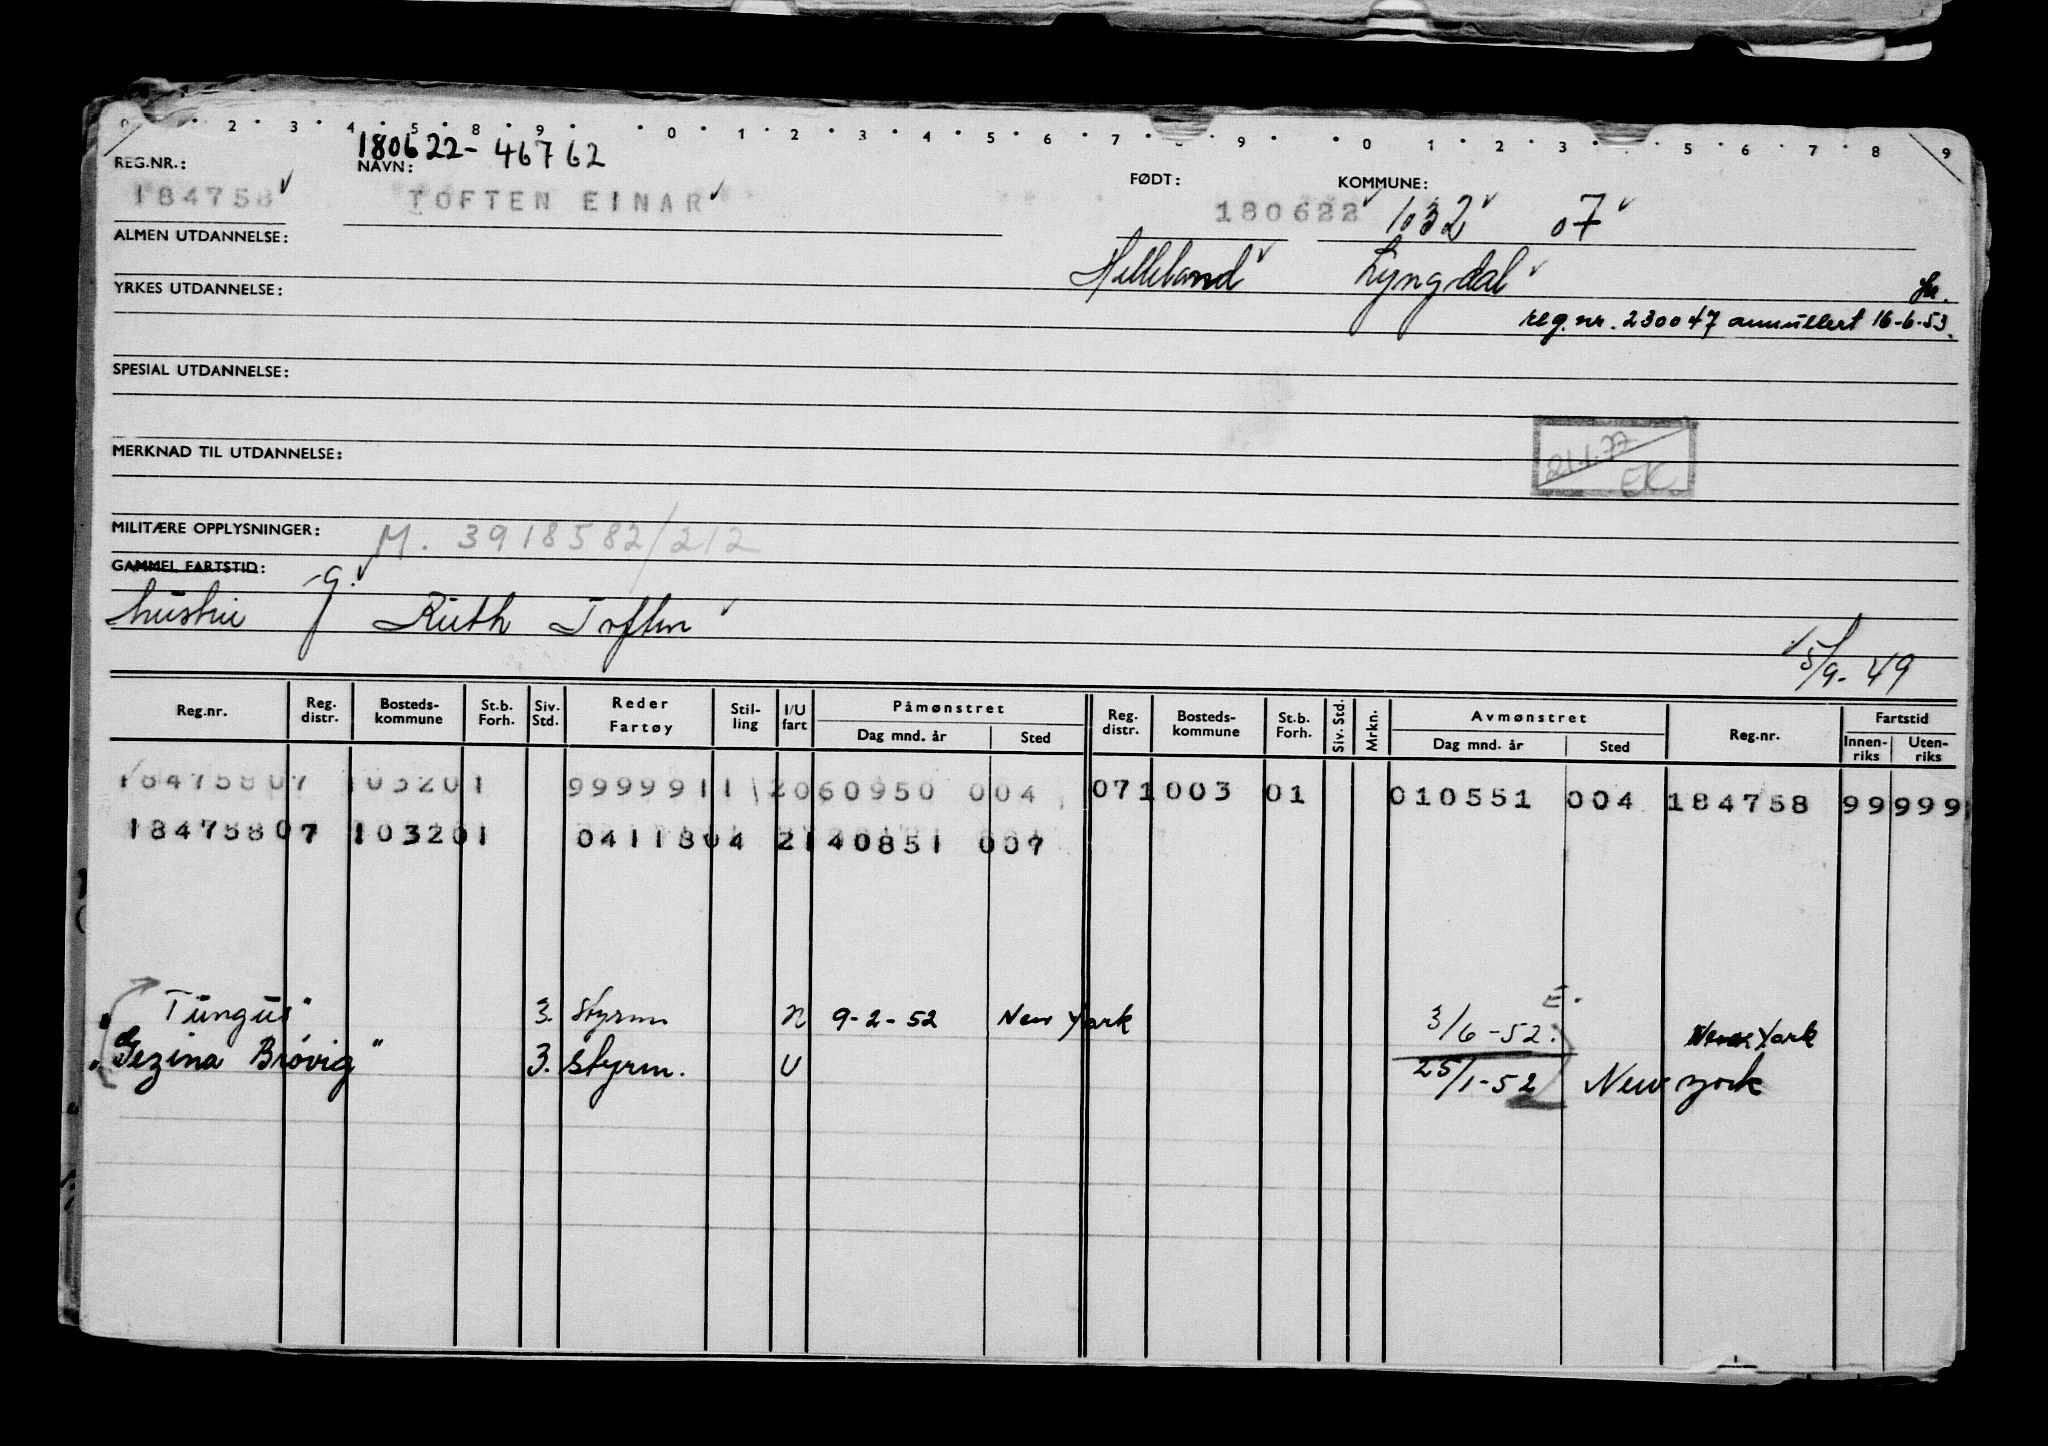 0 · 2 · 3 · 4 · 5 · 8 · 9 · · 0 · 1 · 2 · 3 · 4 · 5 · 6 · 7 · 8 · 9 · · 0 1 · 2 · 3 · · 5 · 6 · 7 · 8 · 9
180622- 46762
REG.NR.: NAVN: FØDT: KOMMUNE:
184758 TOFTEN EINAR 180622 1032 07
ALMEN UTDANNELSE:
Helleland Lyngdal
YRKES UTDANNELSE:
reg.nr. 230047 annullert 16-6-53.
SPESIAL UTDANNELSE:
MERKNAD TIL UTDANNELSE:
21.1.77
EK
MILITÆRE OPPLYSNINGER: M. 3918582/212
GAMMEL FARTSTID: g.
hustru Ruth Toften
15/9-49
Reg.nr. Reg. distr. Bosteds-kommune St.b. Forh. Siv. Std. Reder Fartøy Stil-ling I/U fart Påmønstret Dag mnd. år Sted Reg. distr. Bosteds-kommune St.b. Forh. Siv. Std. Mrkn. Avmønstret Dag mnd. år Sted Reg.nr. Fartstid Innen-riks Uten-riks
18475807 103201 9999911 2060950 004 071003 01 010551 004 184758 99999
18475807 103201 0411804 2140851 007
E.
"Tungus" 3. styrm U 9-2-52 New York 3/6-52. New York
"Gezina Brøvig" 3. styrm. U 25/1-52 New York